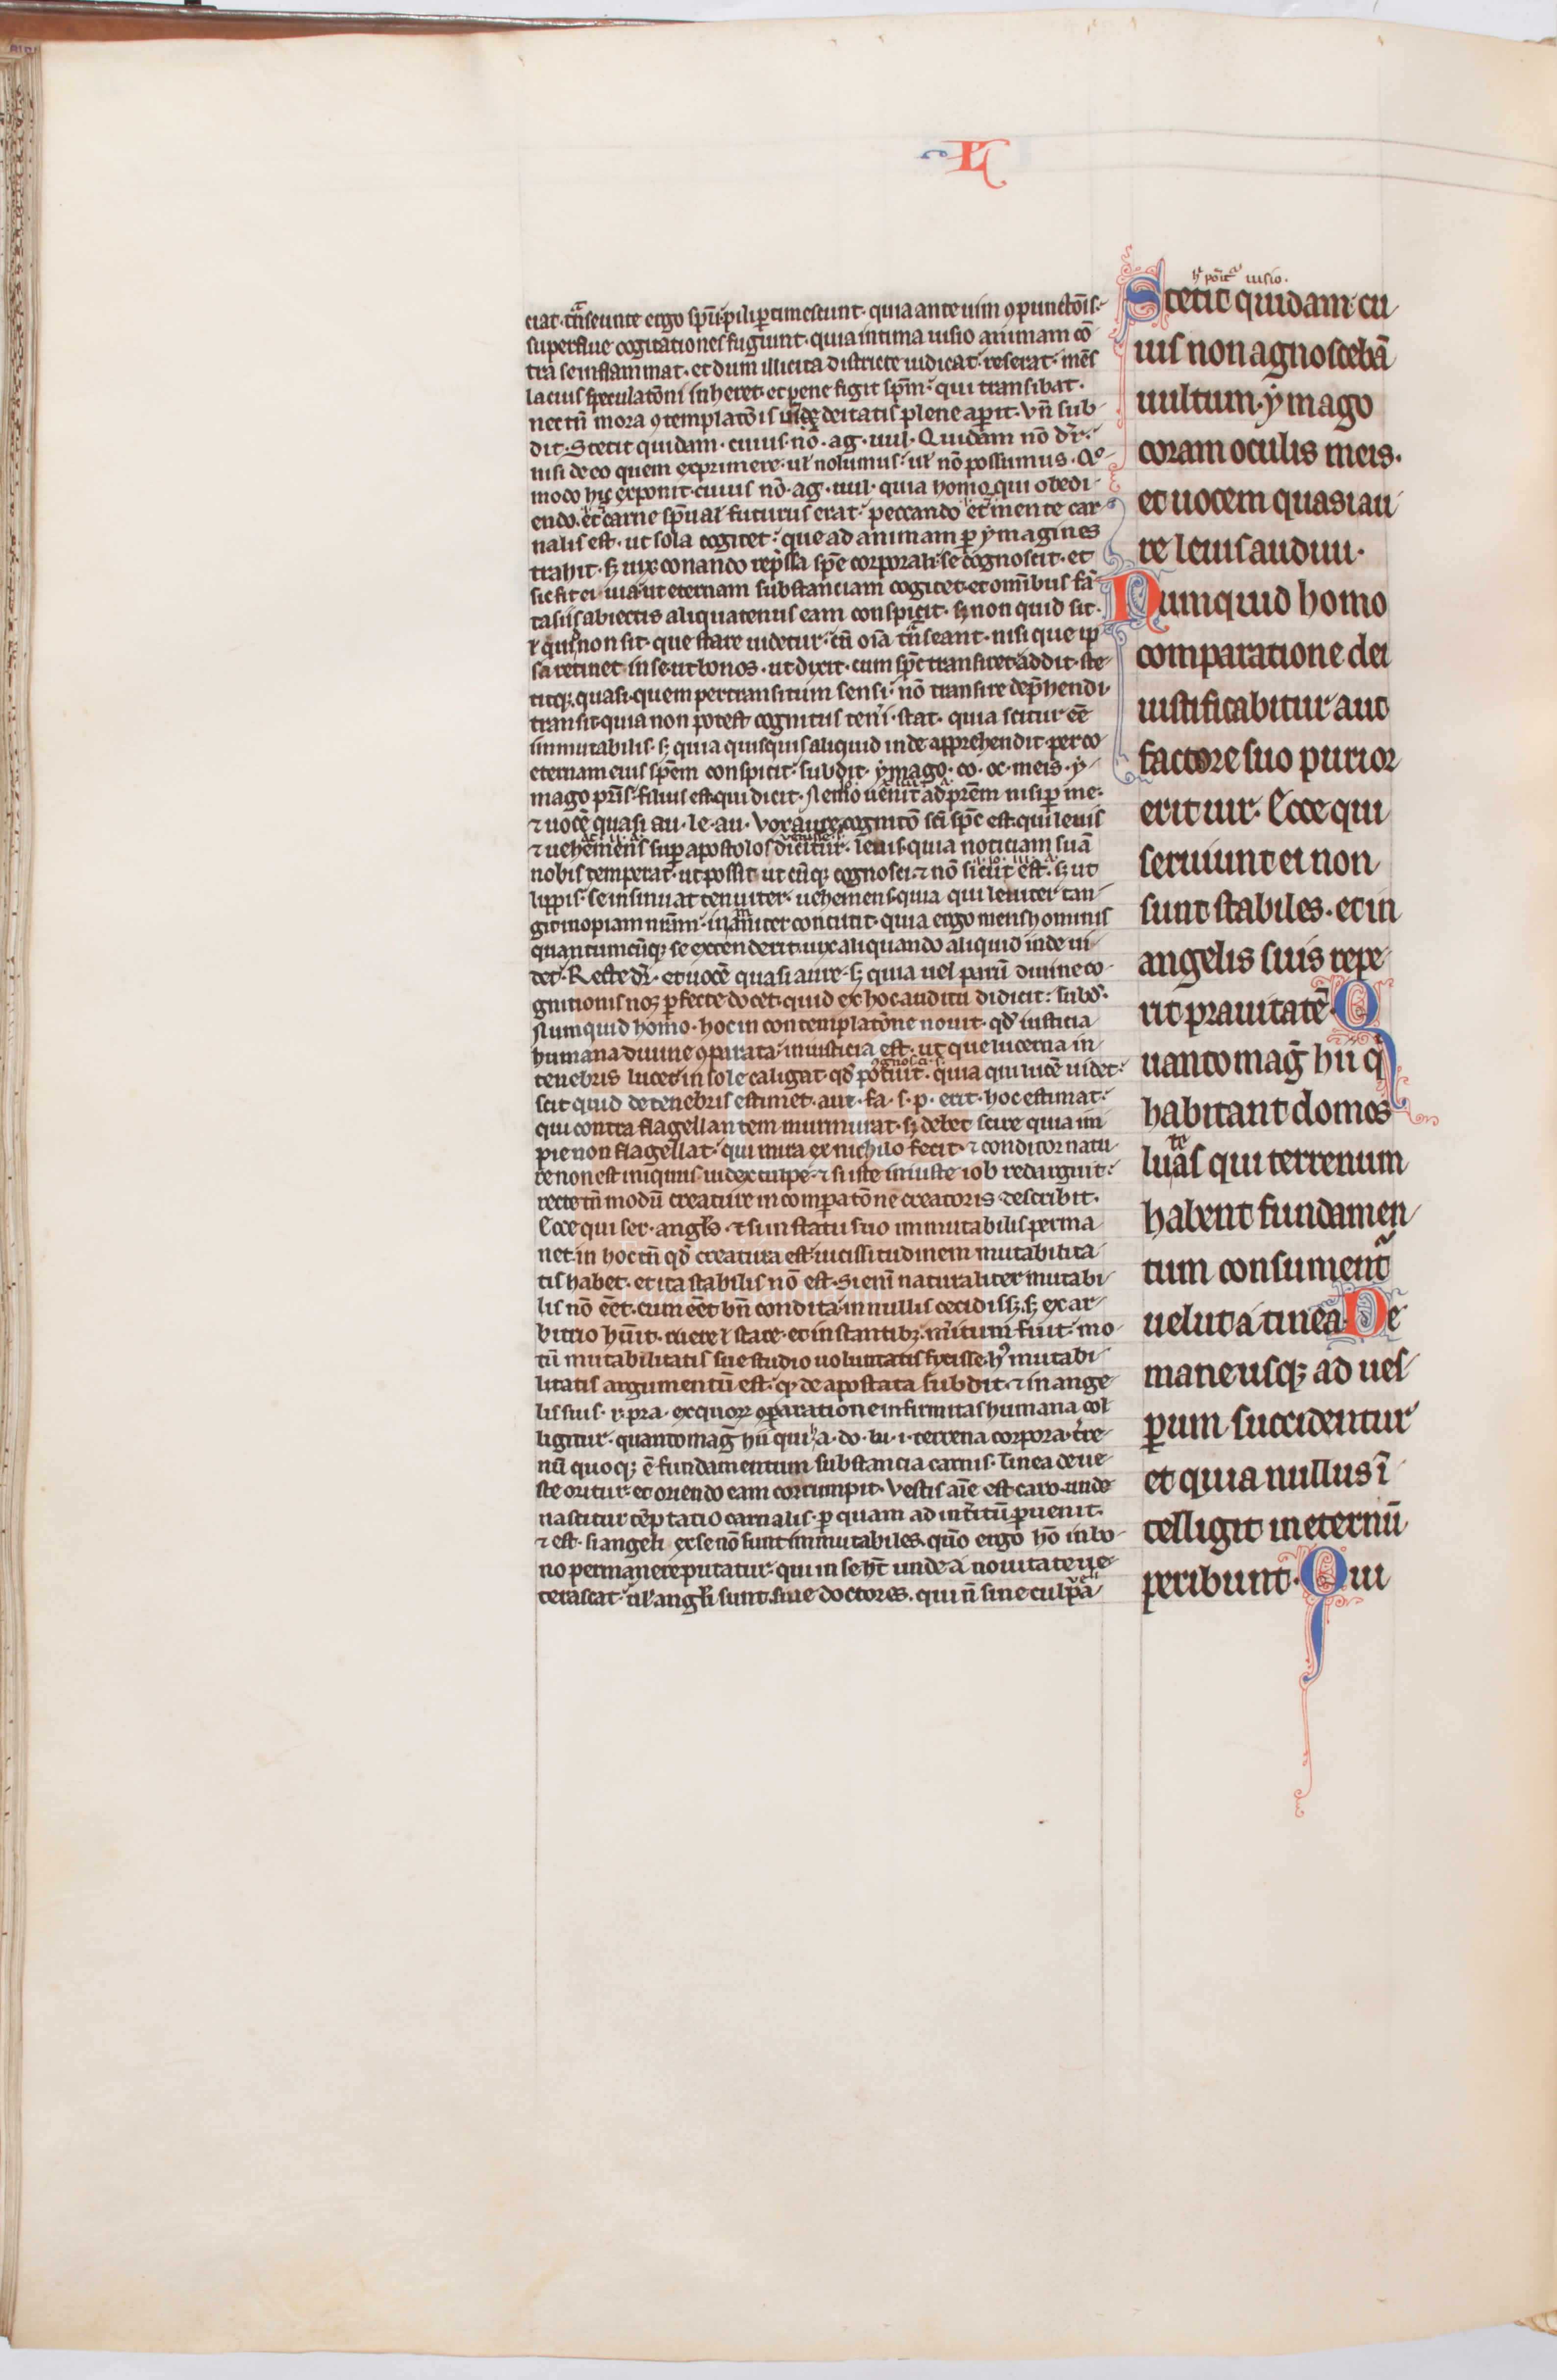 L
ciat. tͣnseunte ergo sp̄u. pili ꝑtimescunt. quia ante uim ꝯpunctōis.
superflue cogitationes fugiunt. quia intima uisio animam cō
tra se inflammat. et dum illicita districte iudicat. reserat. mēs
lacius speculatōni inheret. et pene figit sp̄m. qui transibat.
nec tn̄ mora ꝯtemplatōis uim deitatis plene aꝑit. vn̄ sub
dit. Stetit quidam. cuius. nō. ag. uul. Quidam nō dr̄.
nisi de eo quem exprimere. ul̄ nolumus. ul̄ nō possumus. Qͦ
modo hic exponit. cuius nō. ag. uul. quia homo qui obedi
endo. et carne sp̄ual̄ futurus erat. peccando et mente car
nalis est. ut sola cogitet. que ad animam ꝑ ymagines
trahit. sꝫ uix conando rep̄ssa sp̄e corporali. se cognoscit. et
sic fit ei uia. ut eternam substanciam cogitet. et omībus fā
tasiis abiectis aliquatenus eam conspicit. sꝫ non quid sit.
ł quid non sit. que stare uidetur. cū oīa tͣnseant. nisi que ip
sa retinet in se. ut bonos. ut dixit. cum sp̄c transiret. addit. ste
titqꝫ. quasi. quem pertransitum sensi. nō transire dep̄hendi.
transit. quia non potest cognitus ten̄i. stat. quia scitur eē
immutabilis. sꝫ quia quisquis aliquid inde apprehendit. per co
eternam eius spēm conspicit. subdit. ymago. co. oc. meis. y
mago pr̄is. filius est. qui dicit. Nemo uenit ad pr̄em nisi ꝑ me.
⁊ uocē quasi au. le. au. Vox aure cognitō sc̄i sp̄c est. qui leuis
⁊ uehemens suꝑ apostolos dicitur. lenis. quia noticiam suā
nobis temperat. ut possit utcūqꝫ cognosci. ⁊ nō sicut est. sꝫ ut
lippis. se insinuat tenuiter. uehemens. quia qui leniter tan
git inopiam nr̄am. inaniter concutit. quia ergo mens hominis
quantumcūqꝫ se extenderit. uix aliquando aliquid inde ui
det. Recte dr̄. et uocē quasi aure. sꝫ quia uel parū diuine co
gnitionis nos ꝑfecte docet. quid ex hoc auditu didicit. subd̄.
Numquid homo. hoc in contemplatōne nouit. qd̄ iusticia
humana diuine ꝯparata. iniusticia est. ut que lucerna in
tenebris lucet. in sole caligat. qd̄ potuit. quia qui lucē uidet.
scit quid de tenebris estimet. aut. fa. s. p. erit. hoc estimat.
qui contra flagellantem murmurat. sꝫ debet scire quia im
pie non flagellat. qui mira ex nichilo fecit. ⁊ conditor natu
re non est iniquus iudex culpe. ⁊ si iste iniuste iob redarguit.
recte tn̄ modū creature in comparatōne creatoris describit.
Ecce qui ser. angl̄s. ⁊ si in statu suo immutabilis perma
net. in hoc tn̄ qd̄ creatura est. uicissitudinem mutabilita
tis habet. et ita stabilis nō est. Si enī naturaliter mutabi
lis nō eēt. cum eēt bn̄ condita. in nullis cecidissꝫ. sꝫ ex ar
bitrio hūit. cadere ł stare. et in stantibꝫ. mītum fuit. mo
tū mutabilitatis sue studio uoluntatis fixisse. hꝰ mutabi
litatis argumentū est. qd̄ de apostata subdit. ⁊ in ange
lis suis. r. pra. ex quorꝝ ꝯparatione infirmitas humana col
ligitur. quanto maḡ hii qui. a. do. lu. i. terrena corpora. tre
nū quoqꝫ ē fundamentum substancia carnis. Tinea de ue
ste oritur. et oriendo eam corrumpit. Vestis aīe est caro. unde
nascitur tēptatio carnalis. ꝑ quam ad int̄itū ꝑuenit.
⁊ est. si angeli ex se nō sunt immutabiles. quō ergo hō in bo
no permanere putatur. qui in se ht̄ unde a nouitate ue
terascat. ul̄ angl̄i sunt. siue doctores. qui n̄ sine culpa
Stetit quidam cu
ius non agnoscebā
uultum. ymago
coram oculis meis.
et uocem quasi au
re lenis audiui.
Numquid homo
comparatione dei
iustificabitur aut
factore suo purior
erit uir. Ecce qui
seruiunt ei non
sunt stabiles. et in
angelis suis repe
rit prauitatē. Q
uanto maḡ hii q
habitant domos
luteas qui terrenum
habent fundamen
tum consument̄
uelut a tinea De
mane usqꝫ ad ues
ꝑum succidentur
et quia nullus ī
telligit in eternū
peribunt. Qui